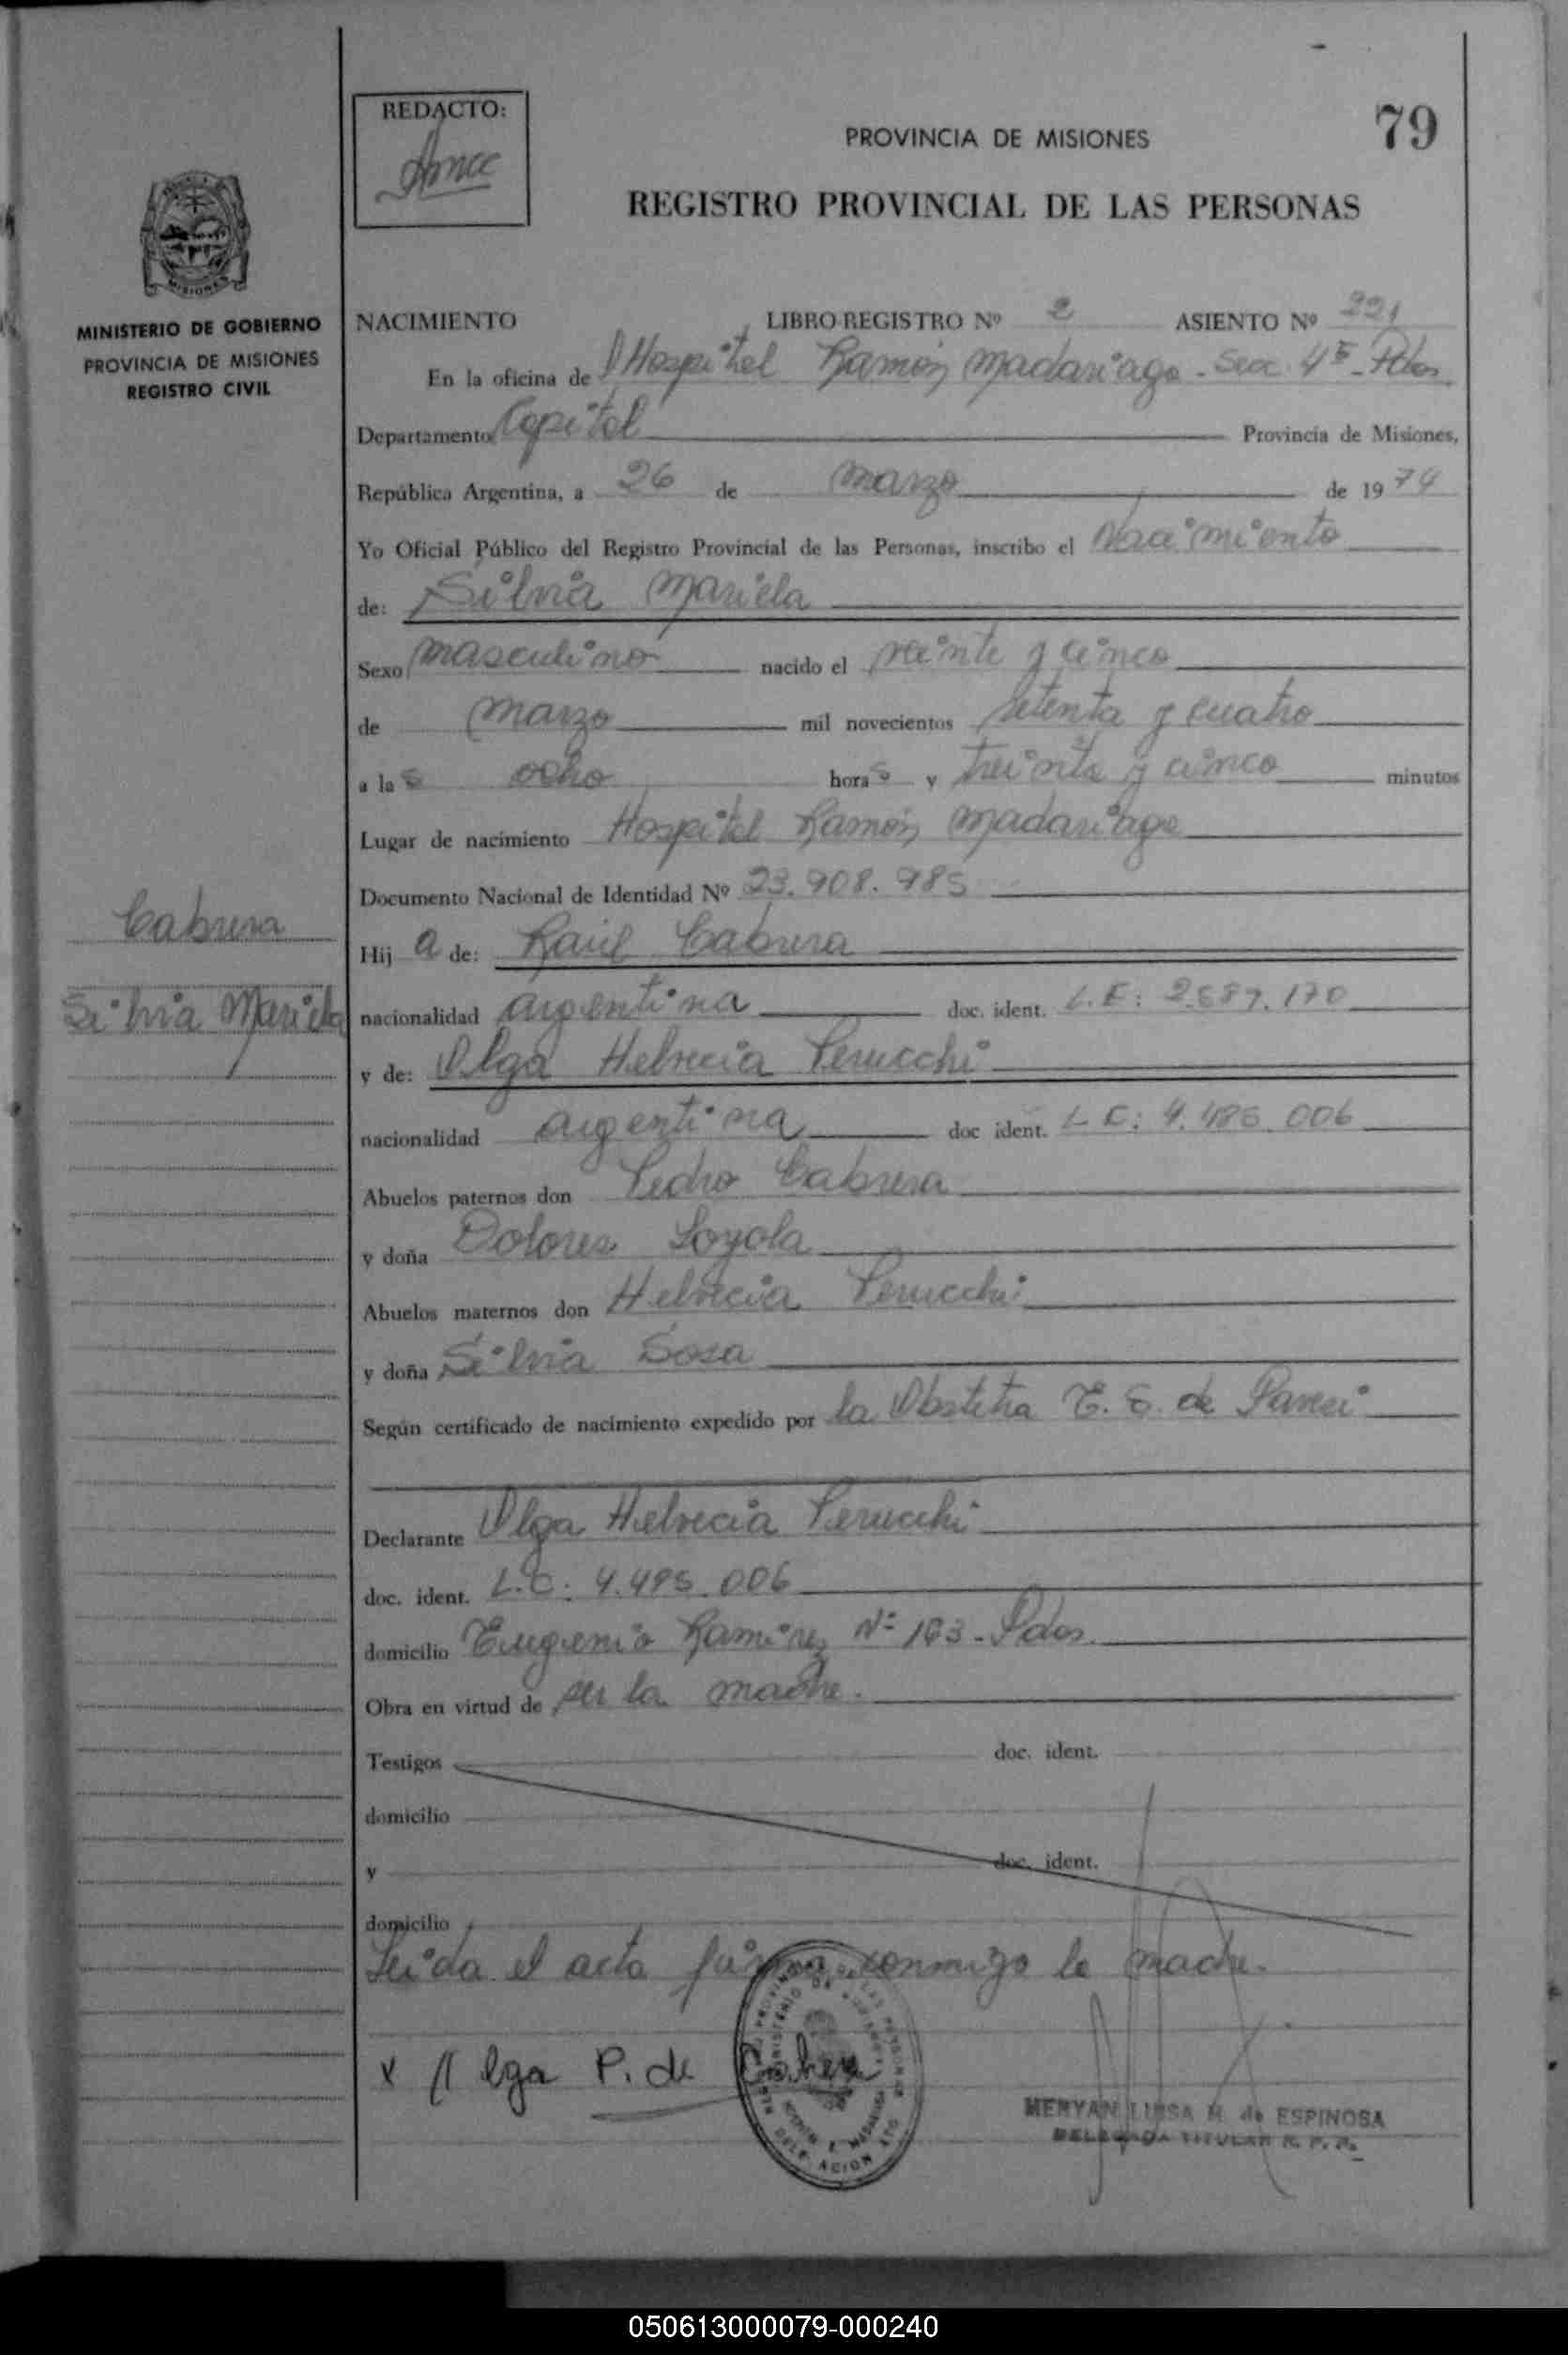 REDACTO:
79
PROVINCIA DE MISIONES
REGISTRO PROVINCIAL DE LAS PERSONAS
MISIONES
MINISTERIO DE GOBIERNO
PROVINCIA DE MISIONES
REGISTRO CIVIL
NACIMIENTO LIBRO REGISTRO Nº 2 ASIENTO Nº 221
En la oficina de Hospital Ramón Madariaga - Secc. 4ª - Pdas.
Departamento Capital Provincia de Misiones,
República Argentina, a 26 de Marzo de 1974
Yo Oficial Público del Registro Provincial de las Personas, inscribo el Nacimiento
de: Silvia Mariela
Sexo masculino nacido el veinte y cinco
de Marzo mil novecientos setenta y cuatro
a las ocho horas y treinta y cinco minutos
Lugar de nacimiento Hospital Ramón Madariaga
Documento Nacional de Identidad Nº 23.908.985
Cabrera
Silvia Mariela
Hija de: Raúl Cabrera
nacionalidad argentina doc. ident. L.E: 170
y de: Olga Helvecia Perucchi
nacionalidad argentina doc ident. L C: 006
Abuelos paternos don Pedro Cabrera
y doña Dolores Loyola
Abuelos maternos don Helvecia Perucchi
y doña Silvia Sosa
Según certificado de nacimiento expedido por la Obstetra E. S. de
Declarante Olga Helvecia Perucchi
doc. ident. L.C: 006
domicilio Eugenio Ramirez Nº Pdas.
Obra en virtud de ser la madre.
Testigos doc. ident.
domicilio
y doc. ident.
domicilio
Leida el acta firma conmigo la madre.
x Olga P. de Cabrera
MERYAN LUISA M. de ESPINOSA
DELEGADA TITULAR R. P. P.
050613000079-000240